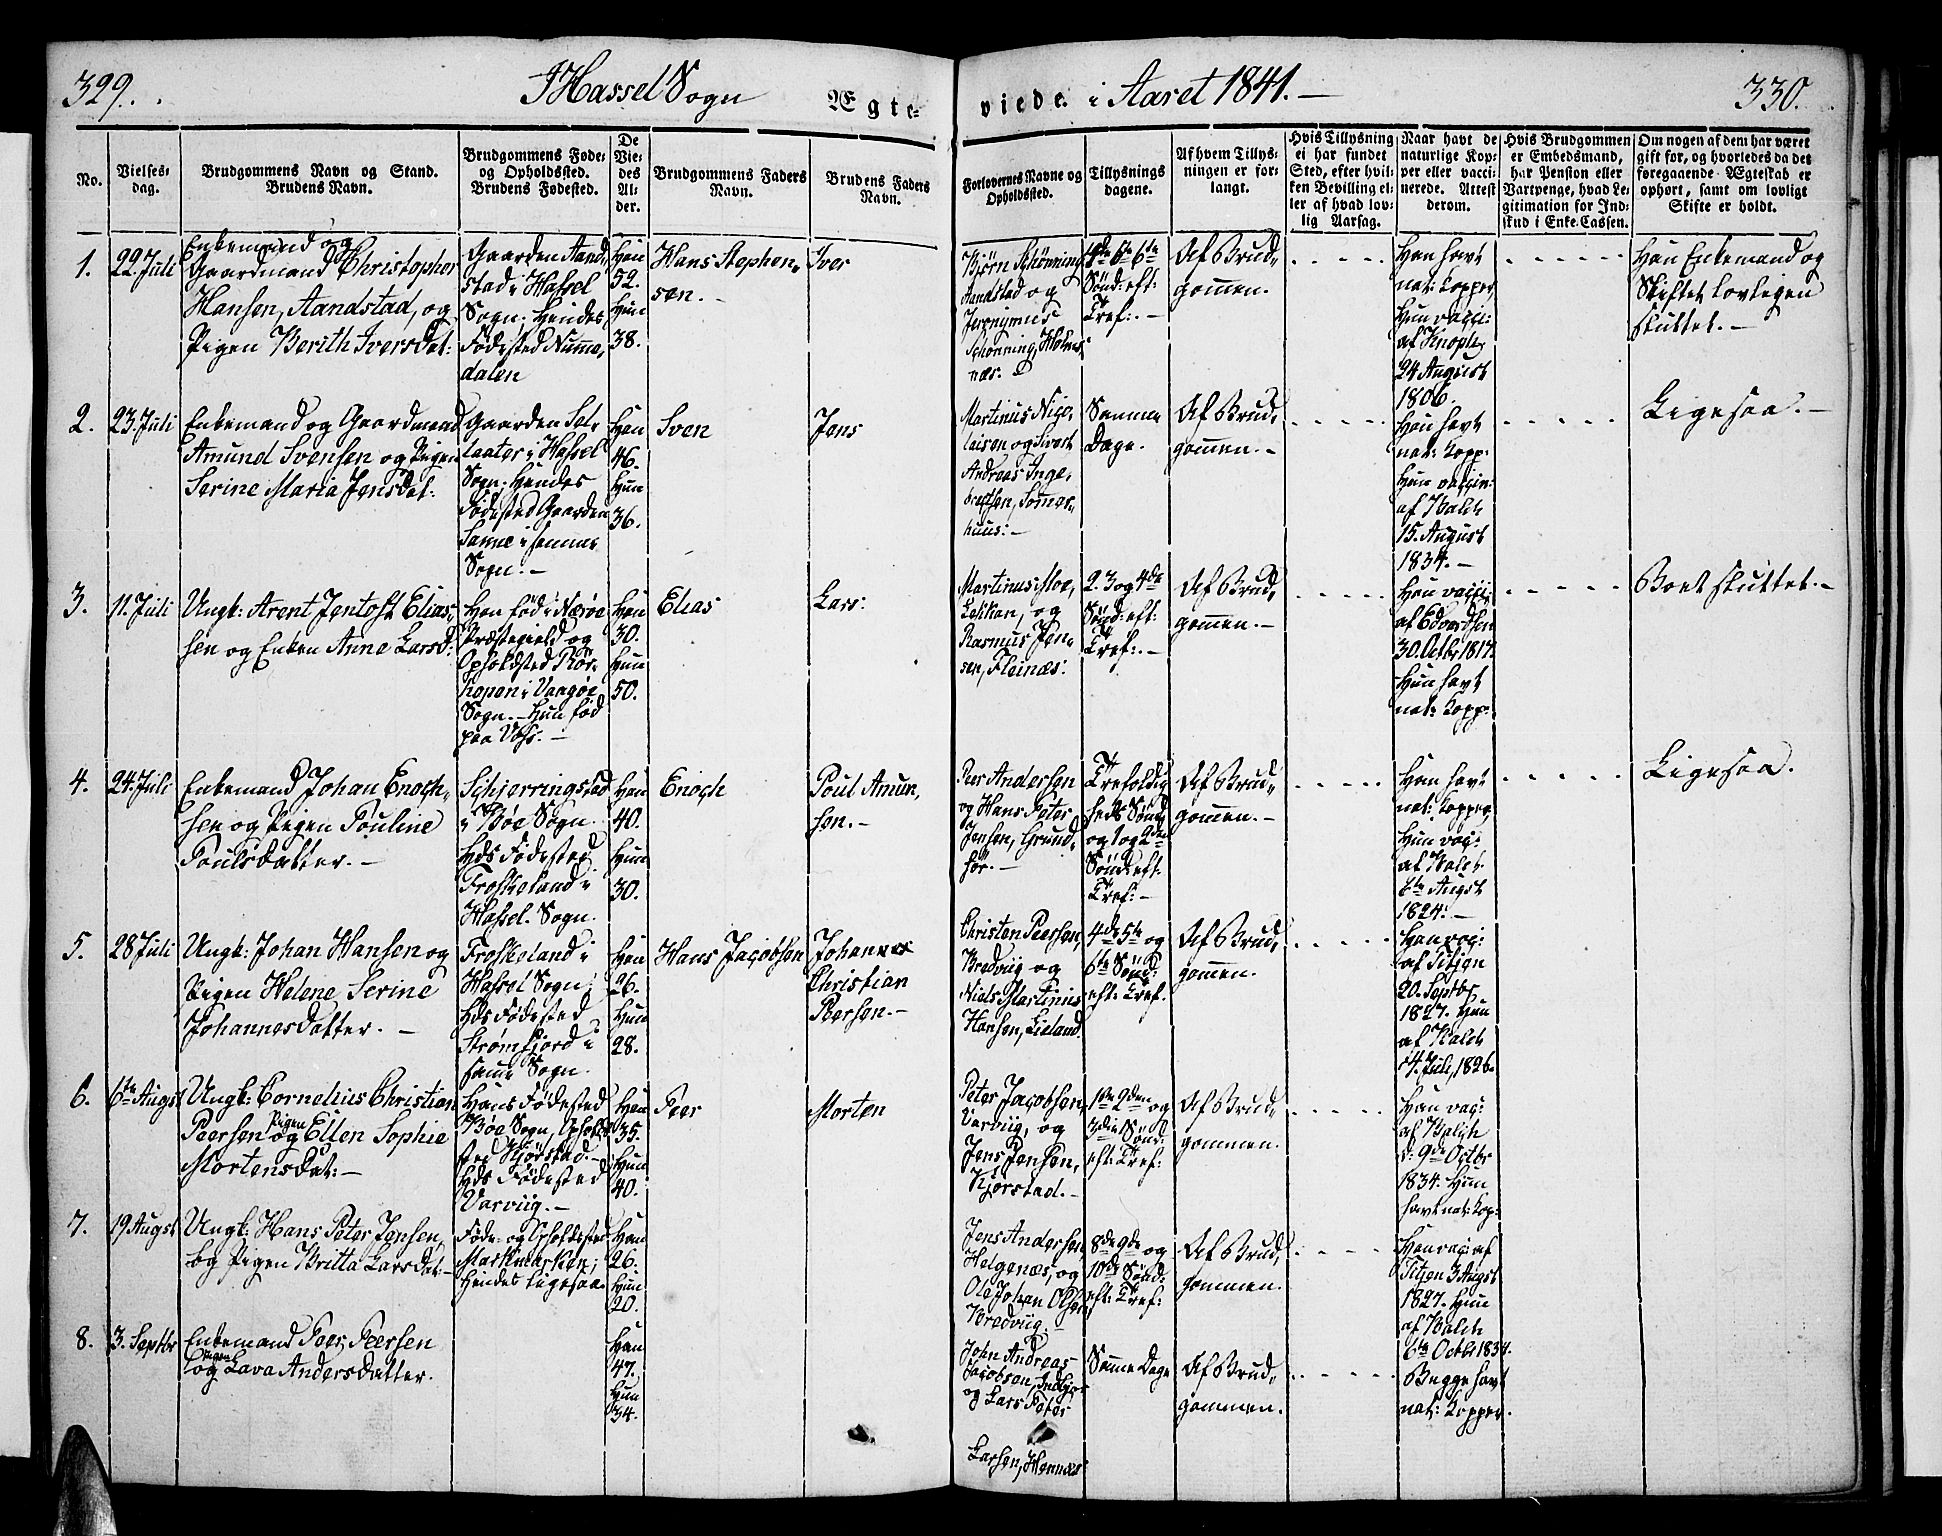 329.
I Hassel Sogn
Ægte-
viede
i Aaret 1841. —
330.
No.
Vielses-
dag.
Brudgommens Navn og Stand.
Brudens Navn.
Brudgommens Føde-
og Opholdsted.
Brudens Fødested.
De
Vie-
des
Al-
der.
Brudgommens Faders
Navn.
Brudens Faders
Navn.
Forlovernes Navne og
Opholdssted.
Tillysnings
dagene.
Af hvem Tillys-
ningen er for-
langt.
Hvis Tillysning
ei har fundet
Sted, efter hvil-
ken Bevilling el-
ler af hvad lov-
lig Aarsag.
Naar havt de
naturlige Kop-
per eller vacci-
nerede. Attest
derom.
Hvis Brudgommen
er Embedsmand,
har Pension eller
Vartpenge, hvad Le-
gitimation for Ind-
skud i Enke-Cassen.
Om nogen af dem har været
gift før, og hvorledes da det
foregaaende Ægteskab er
ophørt, samt om lovligt
Skifte er holdt.
1.
22. Juli
Enkemand og
Gaardmand Christopher
Hansen, Aandstad, og
Pigen Berith Iversdat:
Gaarden Aand-
stad i Hassel
Sogn. Hendes
Fødested Numme-
dalen
Han
52.
Hun
38.
Hans Stephen-
sen. —
Iver
Bjørn Schønning,
Aandsted og
Jeronymus
Schønning, Holms-
næs.
4de 5te 6te
Sønd: eft:
Tref: —
Af Brud-
gommen.
Han havt
nat: Kopper,
Hun vacci:
af Knoph
24 August
1806.
Han Enkemand og
Skiftet lovligen
sluttet. —
2.
23. Juli
Enkemand og Gaardmand
Amund Svensen og Pigen
Serine Maria Jensdat:
Gaarden
i Hassel
Sogn. Hendes
Fødested Gaarden
Sanne i samme
Sogn. —
Han
46.
Hun
36.
Sven
Jens
Martinus Nico-
laisen og Sivert
Andreas Inge-
bregtsen, Somar-
huus: —
Samme
Dage.
Af Brud-
gommen. —
Han havt
nat: Kopp:
Hun vaccin:
af Walch
15. August
1834. —
Ligesaa. —
3.
11. Juli
Ungk: Arent Jentoft Elias-
sen og Enken Anne Larsd:
Han Fød i Nærøe
Præstegield og
Opholdsted Rør-
hopen i Vaagøe
Sogn. — Hun fød
paa Vos. —
Han
30.
Hun
50.
Elias
Lars:
Martinus Moe,
Lekkan, og
Rasmus Jen-
sen, Fleinæs:
2. 3 og 4de
Sønd: eft:
Tref: —
Af Brud-
gommen. —
Han vacci:
af Edvardsen
30. Octbr 1817.
Hun havt
nat: Kopp:
Boet sluttet. —
4.
24. Juli
Enkemand Johan Enoch-
sen og Pigen Pouline
Poulsdatter. —
Schjerringstad
i Bøe Sogn.
Hds Fødested
Froskeland i
Hassel Sogn.
Han
40.
Hun
30.
Enoch
Poul Amun-
sen. —
Peer Andersen
og Hans Peter
Jensen, Grund-
før. —
Trefoldig-
heds Sønd
og 1 og 2den
Sønd: eft:
Tref: —
Af Brud-
gommen. —
Han havt
nat: Kopper
Hun vac:
af Walch
6te Augst
1824. —
Ligesaa.
5.
28 Juli
Ungk: Johan Hansen og
Pigen Helene Serine
Johannesdatter. —
Froskeland i
Hassel Sogn,
Hds Fødested
Strømfjord i
samme Sogn.
Han
26.
Hun
28.
Hans Jacobsen
Johannes
Christian
Peersen. —
Christen Peersen,
Bredviig og
Niels Martinus
Hansen, Lieland.
4de 5te og
6te Sønd:
eft: Tref.
Af Brud-
gommen.
Han vac:
af Titjen
20. Septbr
1827. Hun
af Walch
14. Juli, 1826.
6.
6te Augst
Ungk: Cornelius Christian
Peersen og Pigen Ellen Sophie
Mortensdat: —
Hans Fødested
Bøe Sogn, Ophold-
sted Kjørstad. —
Hds Fødested
Varviig. —
Han
35.
Hun
40.
Peer
Morten
Peter Jacobsen,
Varviig, og
Jens Jensen,
Kjørstad. —
1ste 2den og
3die Sønd:
eft: Tref:
Af Brud-
gommen.
Han vac:
af Walch
d: 9de Octbr
1834. Hun
havt nat: Kop:
7.
19 Augst
Ungk: Hans Peter Jensen,
og Pigen Britta Larsdat: —
Føde- og Opholdsted
Markmarken;
Hendes ligesaa.
Han
26.
Hun
20.
Jens Andersen,
Helgenæs, og
Ole Johan Olsen
Bredviig. —
8de 9de og
10de Sønd:
eft: Tref:
Af Brud-
gommen.
Han vac: af
Titjen 3 Augst
1827. Hun
af Walch
6te Octbr 1834.
8.
3. Septbr
Enkemand Peer Peersen
og Pigen Lava Andersdatter.
Han
47.
Hun
34.
John Andreas
Jacobsen,
og Lars Peter
Larsen, Hennæs
Samme Dage
Af Brud-
gommen.
Begge havt
nat: Kopper.